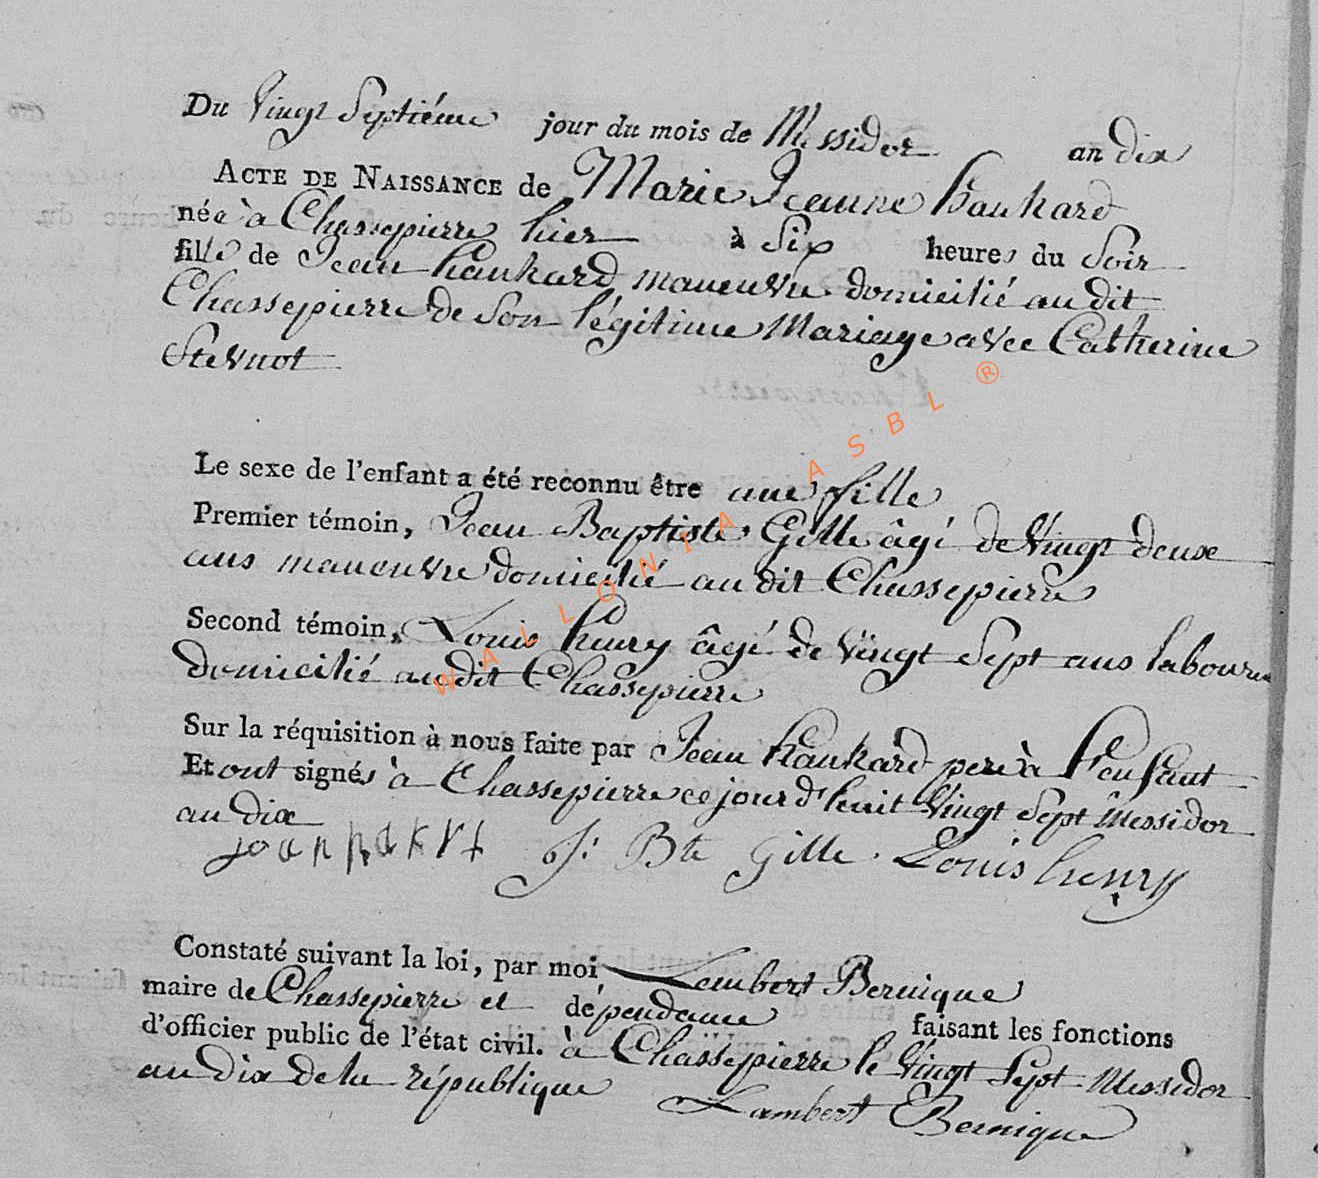 Du Vingt Septiéme jour du mois de Messidor an dix
ACTE DE NAISSANCE de Marie Jeanne hankard
née à Chassepierre hier à Six heures du Soir
fille de Jean hankard maneuvre domicilié au dit
Chassepierre de Son légitime Mariage avec Catherine
Stevnot
Le sexe de l'enfant a été reconnu être une fille
Premier témoin, Jean Baptiste Gille âgé de Vingt deux
ans maneuvre domicilié au dit Chassepierre
Second témoin, Louis henry âgé de Vingt Sept ans laboureur
domicilié au dit Chassepierre
Sur la réquisition à nous faite par Jean hankard pere à l'enfant
Et ont signés à Chassepierre ce jour d'huit Vingt Sept Messidor
an dix
J: Bte Gille Louis henry
Constaté suivant la loi, par moi Lambert Bernique
maire de Chassepierre et dépendance faisant les fonctions
d'officier public de l'état civil. à Chassepierre le Vingt Sept Messidor
an dix de la république
Lambert Bernique
WALLONIA ASBL ®